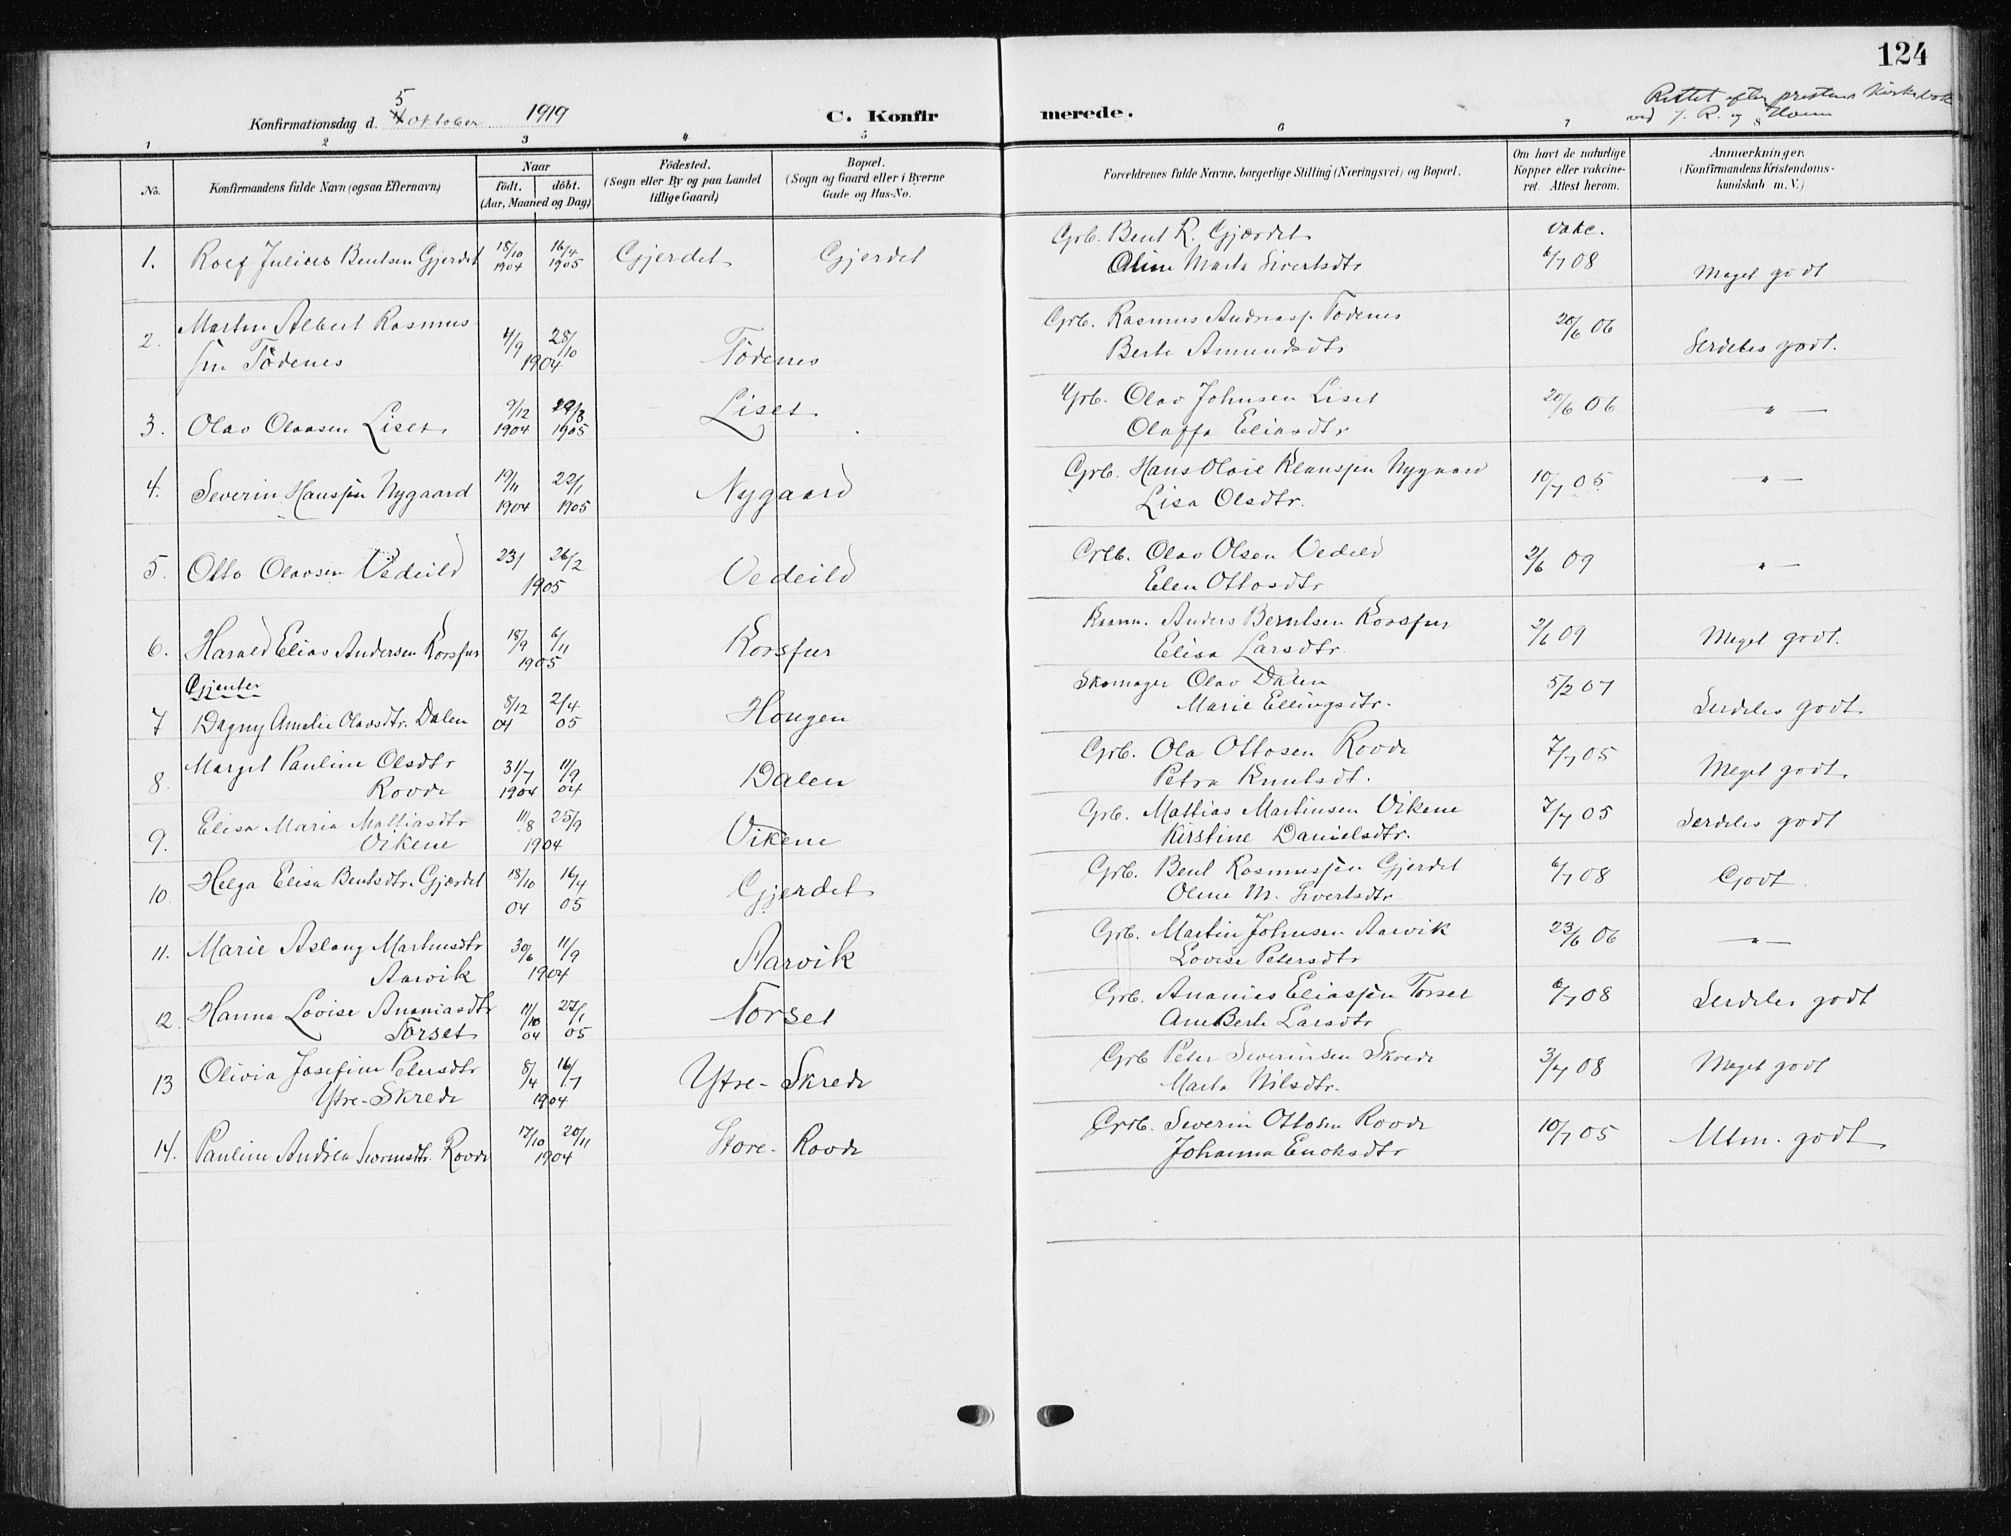 124
Rettet efter prestens Kirkebok
ved J. R. og
Konfirmationsdag d. 5 Oktober 1919
C. Konfirmerede.
1 2 3 4 5 6 7 8
No.
Konfirmandens fulde Navn (ogsaa Efternavn)
Naar
födt. döbt.
(Aar, Maaned og Dag)
Födested.
(Sogn eller By og paa Landet
tillige Gaard)
Bopæl.
(Sogn og Gaard eller i Byerne
Gade og Hus-No.
Forældrenes fulde Navne, borgerlige Stilling (Næringsvei) og Bopæl.
Om havt de naturlige
Kopper eller vakcine-
ret. Attest herom.
Anmærkninger.
(Konfirmandens Kristendoms-
kundskab m. V.)
1. Rolf Julius Bentsen Gjerdet 18/10 1904 16/4 1905 Gjerdet Gjerdet Grb. Bent R. Gjærdet vakc.
Oline Marta Sivertsdtr 6/7 08 Meget godt
2. Martin Albert Rasmus-
sen Tödenes 4/9 25/10 1904 Tödenes Grb. Rasmus Andreass. Tödenes 20/6 06
Berte Amundsdtr Serdeles godt.
3. Olav Olavsen Liset 9/12 1904 1905 Liset Grb. Olav Johnsen Liset 20/6 06 — " —
Oluffa Eliasdtr
4. Severin Hanssen Nygaard 19/11 1904 22/1 1905 Nygaard Grb. Hans Olaie Klaussen Nygaard 10/7 05 — " —
Lisa Olsdtr.
5. Otto Olavsen Vedeild 23/1 26/2 1905 Vedeild Grb. Olav Olsen Vedeild 2/6 09 — " —
Elen Ottosdtr
6. Harald Elias Andersen Korsfur 18/9 6/11 1905 Korsfur Kaarm. Anders Berntsen Korsfur 2/6 09 Meget godt.
Elisa Larsdtr.
Gjenter
7 Dagny Amelie Olavsdtr. Dalen 8/12 04 2/4 05 Hougen Skomager Olav Dalen 5/2 07
Marie Ellingsdtr. Serdeles godt.
8. Margit Pauline Olsdtr
Rovde 31/7 1904 11/9 04 Dalen Grb. Ola Ottosen Rovde 7/7 05
Petra Knutsdt. Meget godt.
9. Elisa Maria Mattiasdtr
Vikene 11/8 25/9 1904 Vikene Grb. Mattias Martinsen Vikene 7/7 05 Serdeles godt
Kirstine Danielsdtr.
10. Helga Elisa Bentsdtr. Gjærdet 18/10 04 16/4 05 Gjerdet Grb. Bent Rasmussen Gjerdet 6/7 08 Godt
Oline M. Sivertsdtr.
11. Marie Aslaug Martinsdtr
Aarvik 30/6 11/9 1904 Aarvik Grb. Martin Johnsen Aarvik 23/6 06 — " —
Lovise Petersdtr
12. Hanna Lovise Ananiasdtr
Torset 11/10 04 27/1 05 Torset Grb. Ananias Eliassen Torset 6/7 08 Serdeles godt
Ane Berte Larsdtr
13 Olivia Josefine Petersdtr
Ytre-Skrede 8/4 16/7 1904 Ytre-Skrede Grb Peter Severinsen Skrede 3/7 08 Meget godt
Marta Nilsdtr.
14. Pauline Andrea Severinsdtr. Rovde 17/10 20/11 1904 Store-Rovde Grb. Severin Ottosen Rovde 10/7 05 Utm. godt
Johanna Enoksdtr